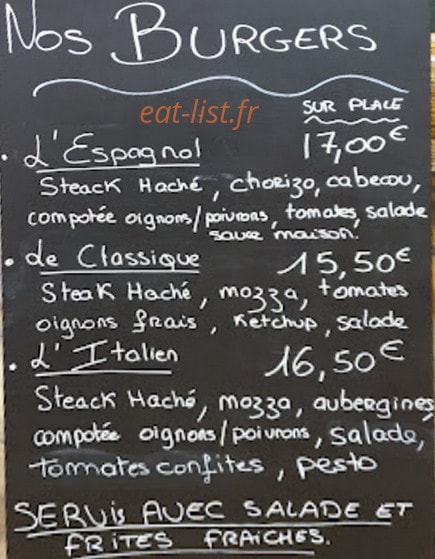 Nos BURGERS
eat-list.fr
SUR PLACE
L'Espagnol 17,00€
Steack Haché, chorizo, cabecou,
compotée oignons/poivrons, tomates, salade
sauce maison.
Le Classique 15,50€
Steak Haché, mozza, tomates
oignons frais, Ketchup, salade
L'Italien 16,50€
Steack Haché, mozza, aubergines,
compotée oignons/poivrons, salade,
tommates confites, pesto
SERVIS AVEC SALADE ET
FRITES FRAICHES.